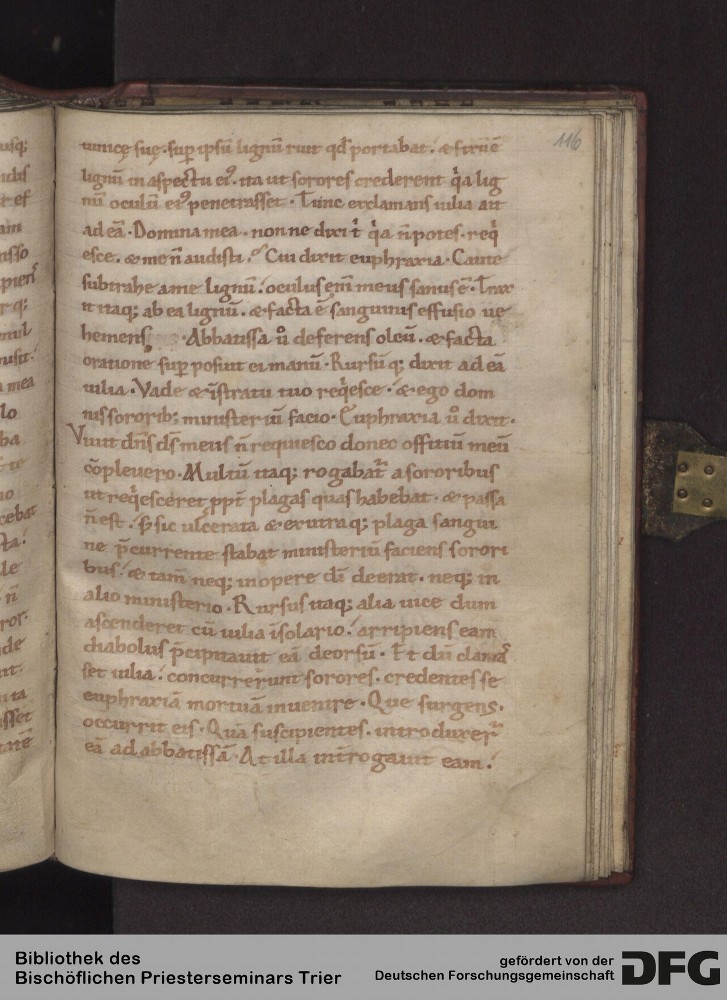 116
tunicę suę. sup ipsū lignū ruit qđ portabat. & struē
lignū in aspectu eiꝰ. ita ut sorores crederent q̇a lig
nū oculū eiꝰ penetrasset. Tunc exclamans iulia ait
ad eā. Domina mea. nonne dixi t̓ q̇a n̄ potes. req̇
esce. & me n̄ audisti. Cui dixit euphraxia. Caute
subtrahe a me lignū. oculus em̄ meus sanus ē. Trax
it itaq; ab ea lignū. & facta ē sanguinis effusio ue
hemens. Abbatissa ů deferens oleū. & facta
oratione sup posuit ei manū. Rursūq; dixit ad eā
iulia. Vade & ī stratu tuo req̇esce. & ego dom
nis sororib; ministeriū facio. Euphraxia ů dixit.
Viuit dn̄s ds̄ meus n̄ requiesco donec offitiū meū
cōpleuero. Multū itaq; rogabat̃ a sororibus
ut req̇esceret ppt̃ plagas quas habebat. & passa
n̄ est. S; sic ulcerata & ex utraq; plaga sangui
ne p̄currente stabat ministeriū faciens sorori
bus. & tam̄ neq; in opere dī deerat. neq; in
alio ministerio. Rursus itaq; alia uice dum
ascenderet cū iulia ī solario. arripiens eam
diabolus p̄cipitauit eā deorsū. Et dū clamas
set iulia. concurrerunt sorores. credentes se
euphraxiā mortuā inuenire. Que surgens.
occurrit eis. Quā suscipientes. introduxer̃
eā ad abbatissā. At illa int̃rogauit eam.
Bibliothek des
Bischöflichen Priesterseminars Trier
gefördert von der
Deutschen Forschungsgemeinschaft
DFG